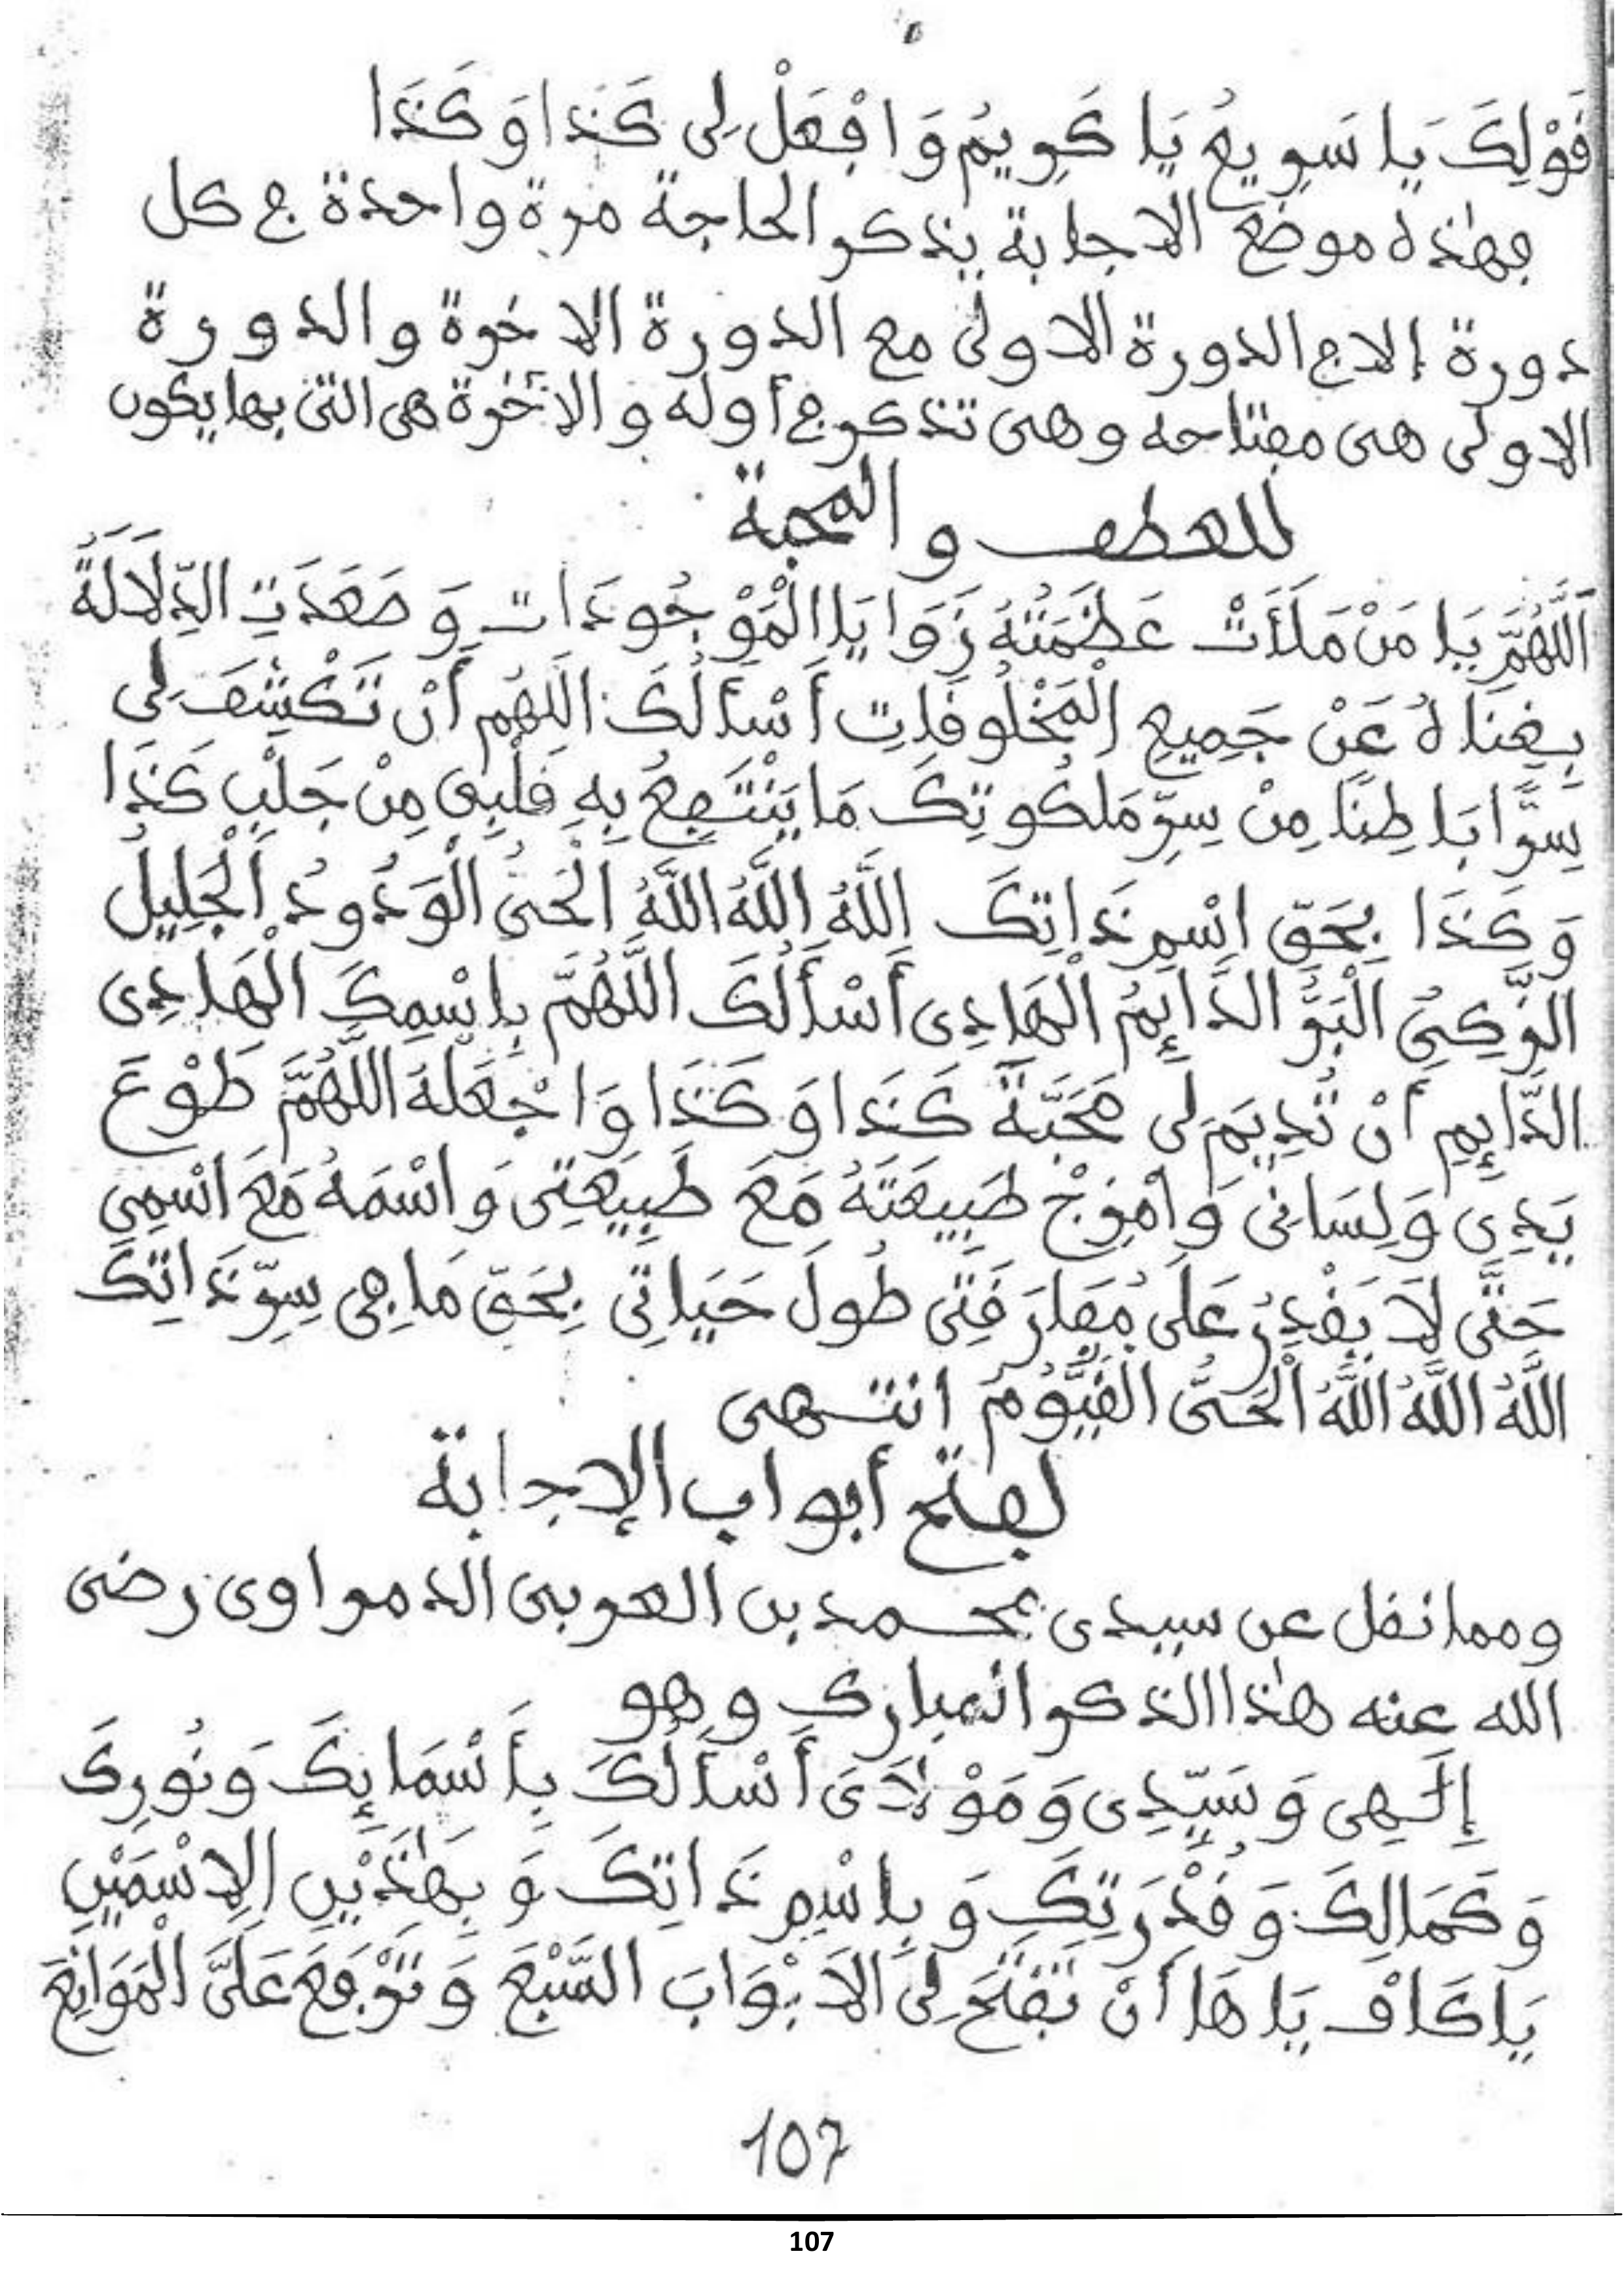 قَوْلِكَ يَا سَرِيعُ يَا كَرِيمُ وَافْعَلْ لِى كَذَا وَكَذَا
فهٰذه موضع الاجابة يذكر الحاجة مرة واحدة في كل
دورة إلا في الدورة الاولى مع الدورة الاخرة والدورة
الاولى هى مفتاحه وهى تذكر في أوله والأخرة هى التى بها يكون
للعطف والمحبة
اَللَّهُمَّ يَا مَنْ مَلَأَتْ عَظَمَتُهُ زَوَايَا الْمَوْجُودَاتِ وَصَعَدَتِ الدِّلَالَةُ
بِغِنَاهُ عَنْ جَمِيعِ الْمَخْلُوقَاتِ أَسْأَلُكَ اللهُم أَنْ تَكْشِفَ لِى
سِرًّا بَاطِنًا مِنْ سِرِّ مَلَكُوتِكَ مَا يَنْتَفِعُ بِهِ قَلْبِى مِنْ جَلْبِ كَذَا
وَكَذَا بِحَقِّ اسْمِ ذَاتِكَ اللَّهُ اللَّهُ اللَّهُ الْحَىُّ الْوَدُودُ الْجَلِيلُ
الزَّكِىُّ الْبَرُّ الدَّايِمُ الْهَادِى أَسْأَلُكَ اللَّهُمَّ بِاسْمِكَ الْهَادِى
الدَّايِمِ أَنْ تُدِيمَ لِى مَحَبَّةَ كَذَا وَكَذَا وَاجْعَلْهُ اللَّهُمَّ طَوْعَ
يَدِى وَلِسَانِى وَامْزِجْ طَبِيعَتَهُ مَعَ طَبِيعَتِى وَاسْمَهُ مَعَ اسْمِى
حَتَّى لَا يَقْدِرُ عَلَى مُفَارَقَتِى طُولَ حَيَاتِي بِحَقِّ مَا فِى سِرِّ ذَاتِكَ
اللَّهُ اللَّهُ اللَّهُ الْحَىُّ الْقَيُّومُ انتهى
لفتح أبواب الإجابة
ومما نقل عن سيدى محمد بن العربى الدمراوى رضى
الله عنه هٰذا الذكر المبارك وهو
إِلَهِى وَسَيِّدِى وَمَوْلَاىَ أَسْأَلُكَ بِأَسْمَايِكَ وَنُورِكَ
وَكَمَالِكَ وَقُدْرَتِكَ وَبِاسْمِ ذَاتِكَ وَبِهَٰذَيْنِ الِاسْمَيْنِ
يَا كَافْ يَا هَا أَنْ تَفْتَحَ لِىَ الَابْوَابَ السَّبْعَ وَتَرْفَعَ عَلَىَّ الْمَوَانِعَ
107
107